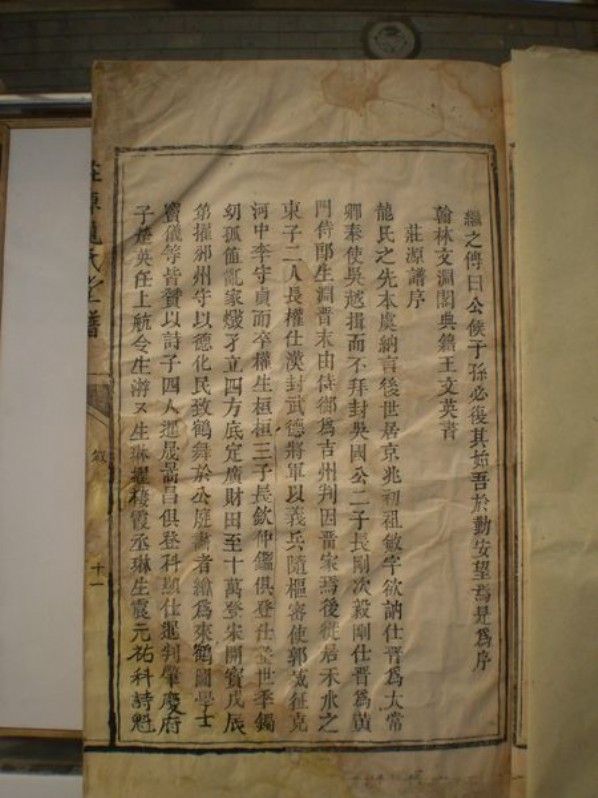 繼之傳曰公侯子孫必復其始吾於勤安望焉是爲序
翰林文淵閣典籍王文英書
莊源譜序
龍氏之先本虞納言後世居京兆初祖敏字欲訥仕晉爲太常
卿奉使吳越揖而不拜封吳國公二子長剛次毅剛仕晉爲黃
門侍郎生淵晋末由侍御爲吉州判因晋家焉後徙居禾水之
東子二人長權仕漢封武德將軍以義兵隨樞密使郭威征克
河中李守貞而卒權生桓桓三子長欽仲鑑俱登仕登世季鐲
幼孤值亂家燬孑立四方底定廣財田至十萬登宋開寳戊辰
第擢邠州守以德化民致鶴舞於公庭畵者繪爲來鶴圖學士
竇儀等皆贊以詩子四人暹晟暠昌俱登科顯仕暹判肇慶府
子楚英任上航令生濟又生琳擢棲霞丞琳生震元祐科詩魁
莊源龍氏全譜
敘
十一